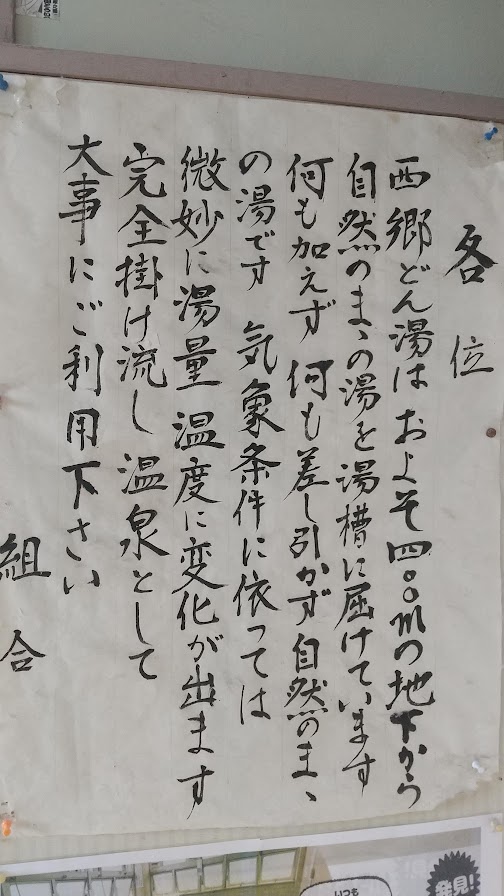 各位
西郷どん湯は およそ四〇〇mの地下から
自然のまゝの湯を湯槽に届けています
何も加えず 何も差し引かず 自然のまゝ
の湯です 気象条件に依っては
微妙に湯量 温度に変化が出ます
完全掛け流し 温泉として
大事にご利用下さい
組合
いつも
発見!